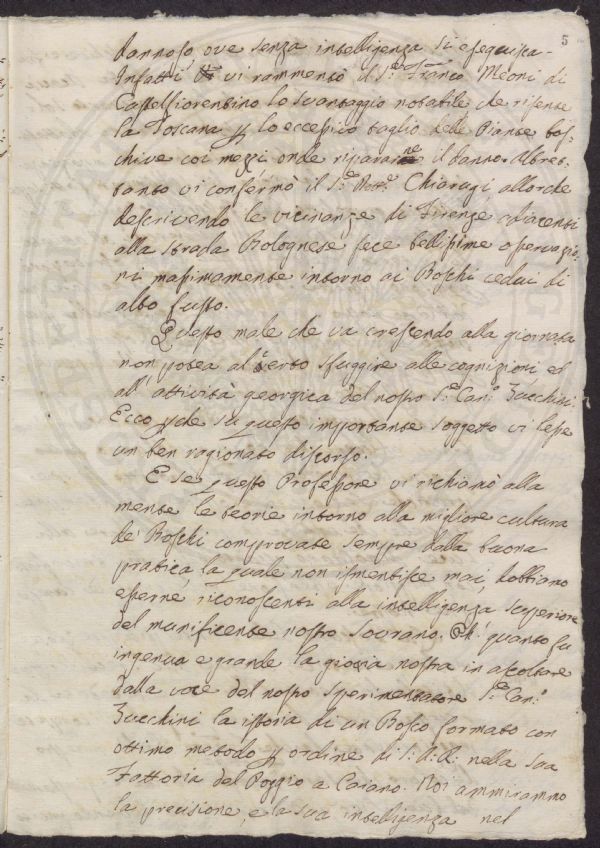 5
dannoso ove senza intelligenza si eseguisca.
Infatti vi rammentò il S.r Franco Meoni di
Castelfiorentino lo svantaggio notabile che risente
la Toscana p lo eccessivo taglio delle Piante bos-
chive coi mezzi onde ripararne il danno. Altret-
tanto vi confermò il S.r Dott.r Chiarugi allorchè
descrivendo le vicinanze di Firenze adiacenti
alla strada Bolognese fece bellissime osservazio-
ni massimamente intorno ai Boschi cedui di
alto fusto.
Questo male che va crescendo alla giornata
non potea al certo sfuggire alle cognizioni ed
all' attività georgica del nostro S.r Can.o Zucchini.
Ecco pchè su questo importante soggetto vi lesse
un ben ragionato discorso.
E se questo Professore vi richiamò alla
mente le teorie intorno alla migliore cultura
de' Boschi comprovate sempre dalla buona
pratica, la quale non ismentisce mai, dobbiamo
esserne riconoscenti alla intelligenza superiore
del munificente nostro Sovrano. Oh! quanto fu
ingenua e grande la gioia nostra in ascoltare
dalla voce del nostro Sperimentatore S.r Can.o
Zucchini la istoria di un Bosco formato con
ottimo metodo p ordine di S. A. R. nella sua
Fattoria del Poggio a Caiano. Noi ammirammo
la precisione, e la sua intelligenza nel